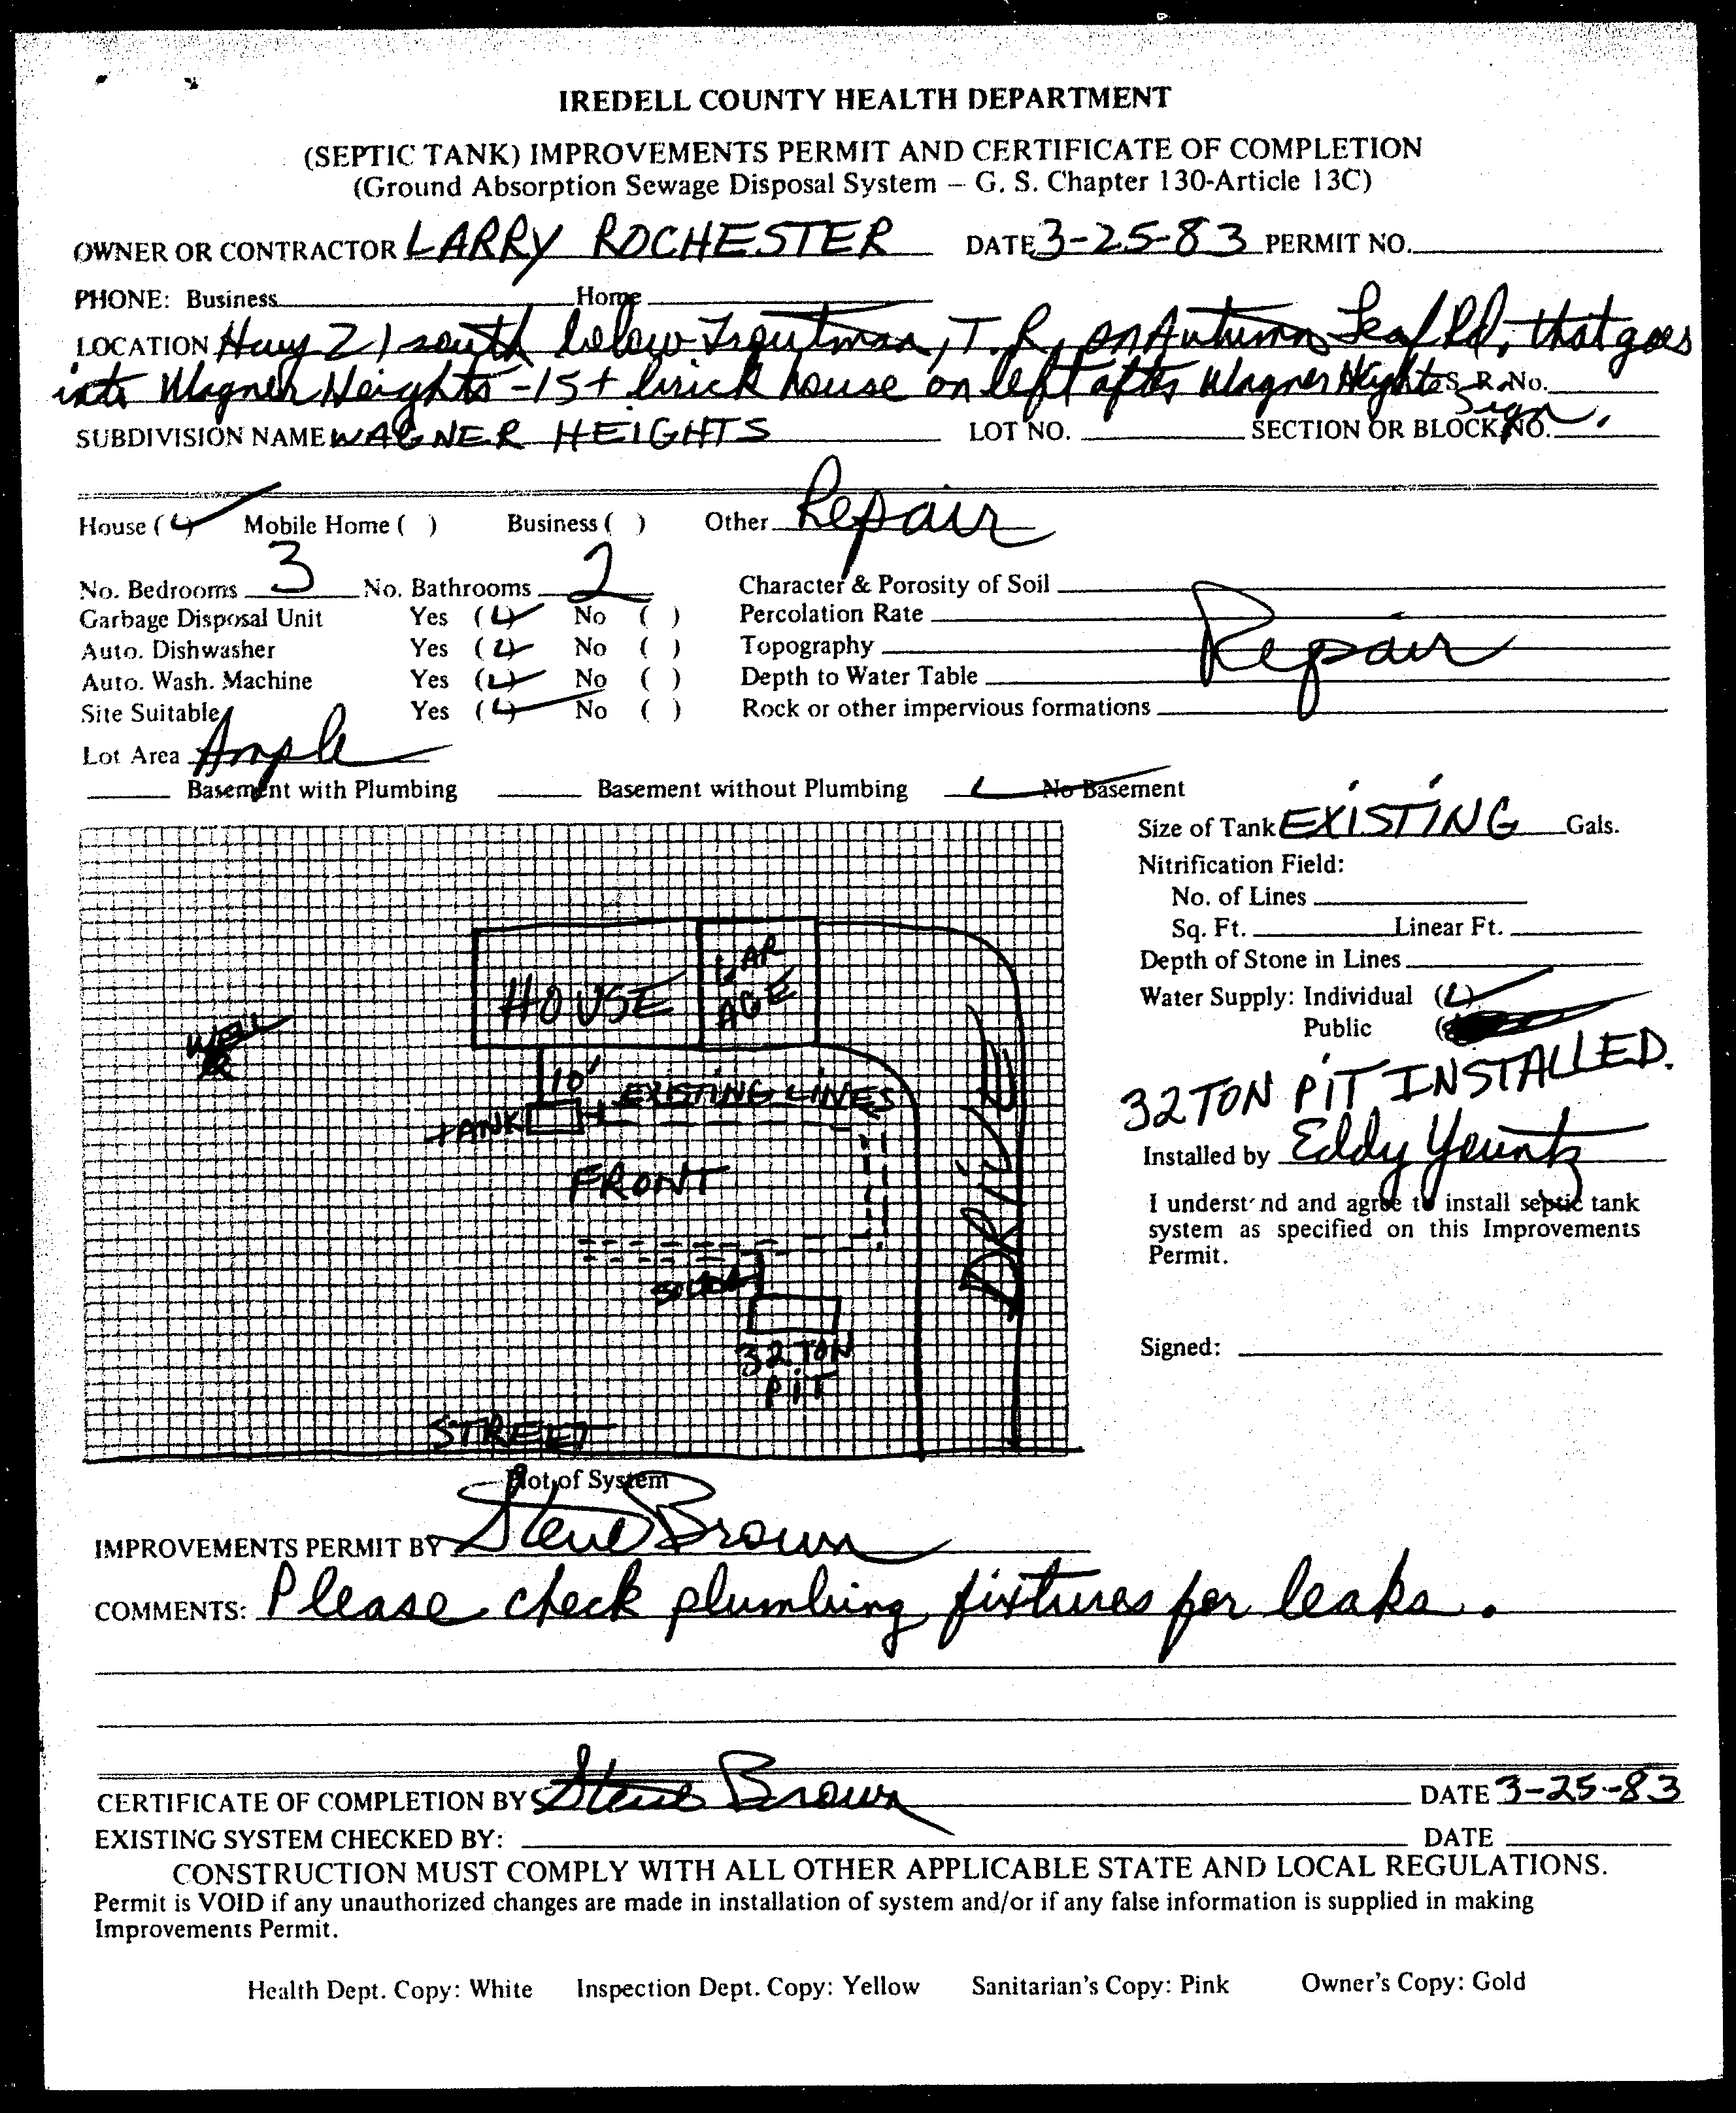 IREDELL COUNTY HEALTH DEPARTMENT
(SEPTIC TANK) IMPROVEMENTS PERMIT AND CERTIFICATE OF COMPLETION
(Ground Absorption Sewage Disposal System – G. S. Chapter 130-Article 13C)
OWNER OR CONTRACTOR LARRY ROCHESTER DATE 3-25-83 PERMIT NO.
PHONE: Business Home
LOCATION Hwy 21 south below Troutman, T.R. on Autumn Leaf Rd, that goes
into Wagner Heights - 1st brick house on left after Wagner Heights S. R. No.
Sign.
SUBDIVISION NAME WAGNER HEIGHTS LOT NO. SECTION OR BLOCK NO.
House ( ) Mobile Home ( ) Business ( ) Other Repair
No. Bedrooms 3 No. Bathrooms 2 Character & Porosity of Soil
Garbage Disposal Unit Yes ( ) No ( ) Percolation Rate
Auto. Dishwasher Yes ( ) No ( ) Topography Repair
Auto. Wash. Machine Yes ( ) No ( ) Depth to Water Table
Site Suitable Yes ( ) No ( ) Rock or other impervious formations
Lot Area Ample
Basement with Plumbing Basement without Plumbing No Basement
Size of Tank EXISTING Gals.
Nitrification Field:
No. of Lines
Sq. Ft. Linear Ft.
Depth of Stone in Lines
Water Supply: Individual ( )
Public ( )
32 TON PIT INSTALLED.
Installed by Eddy
I understand and agree to install septic tank
system as specified on this Improvements
Permit.
Signed:
HOUSE
GAR
AGE
WELL
10'
EXISTING LINES
TANK
FRONT
DRIVE
32 TON
PIT
STREET
Plot of System
IMPROVEMENTS PERMIT BY Steve Brown
COMMENTS: Please check plumbing fixtures for leaks.
CERTIFICATE OF COMPLETION BY Steve Brown DATE 3-25-83
EXISTING SYSTEM CHECKED BY: DATE
CONSTRUCTION MUST COMPLY WITH ALL OTHER APPLICABLE STATE AND LOCAL REGULATIONS.
Permit is VOID if any unauthorized changes are made in installation of system and/or if any false information is supplied in making
Improvements Permit.
Health Dept. Copy: White Inspection Dept. Copy: Yellow Sanitarian's Copy: Pink Owner's Copy: Gold